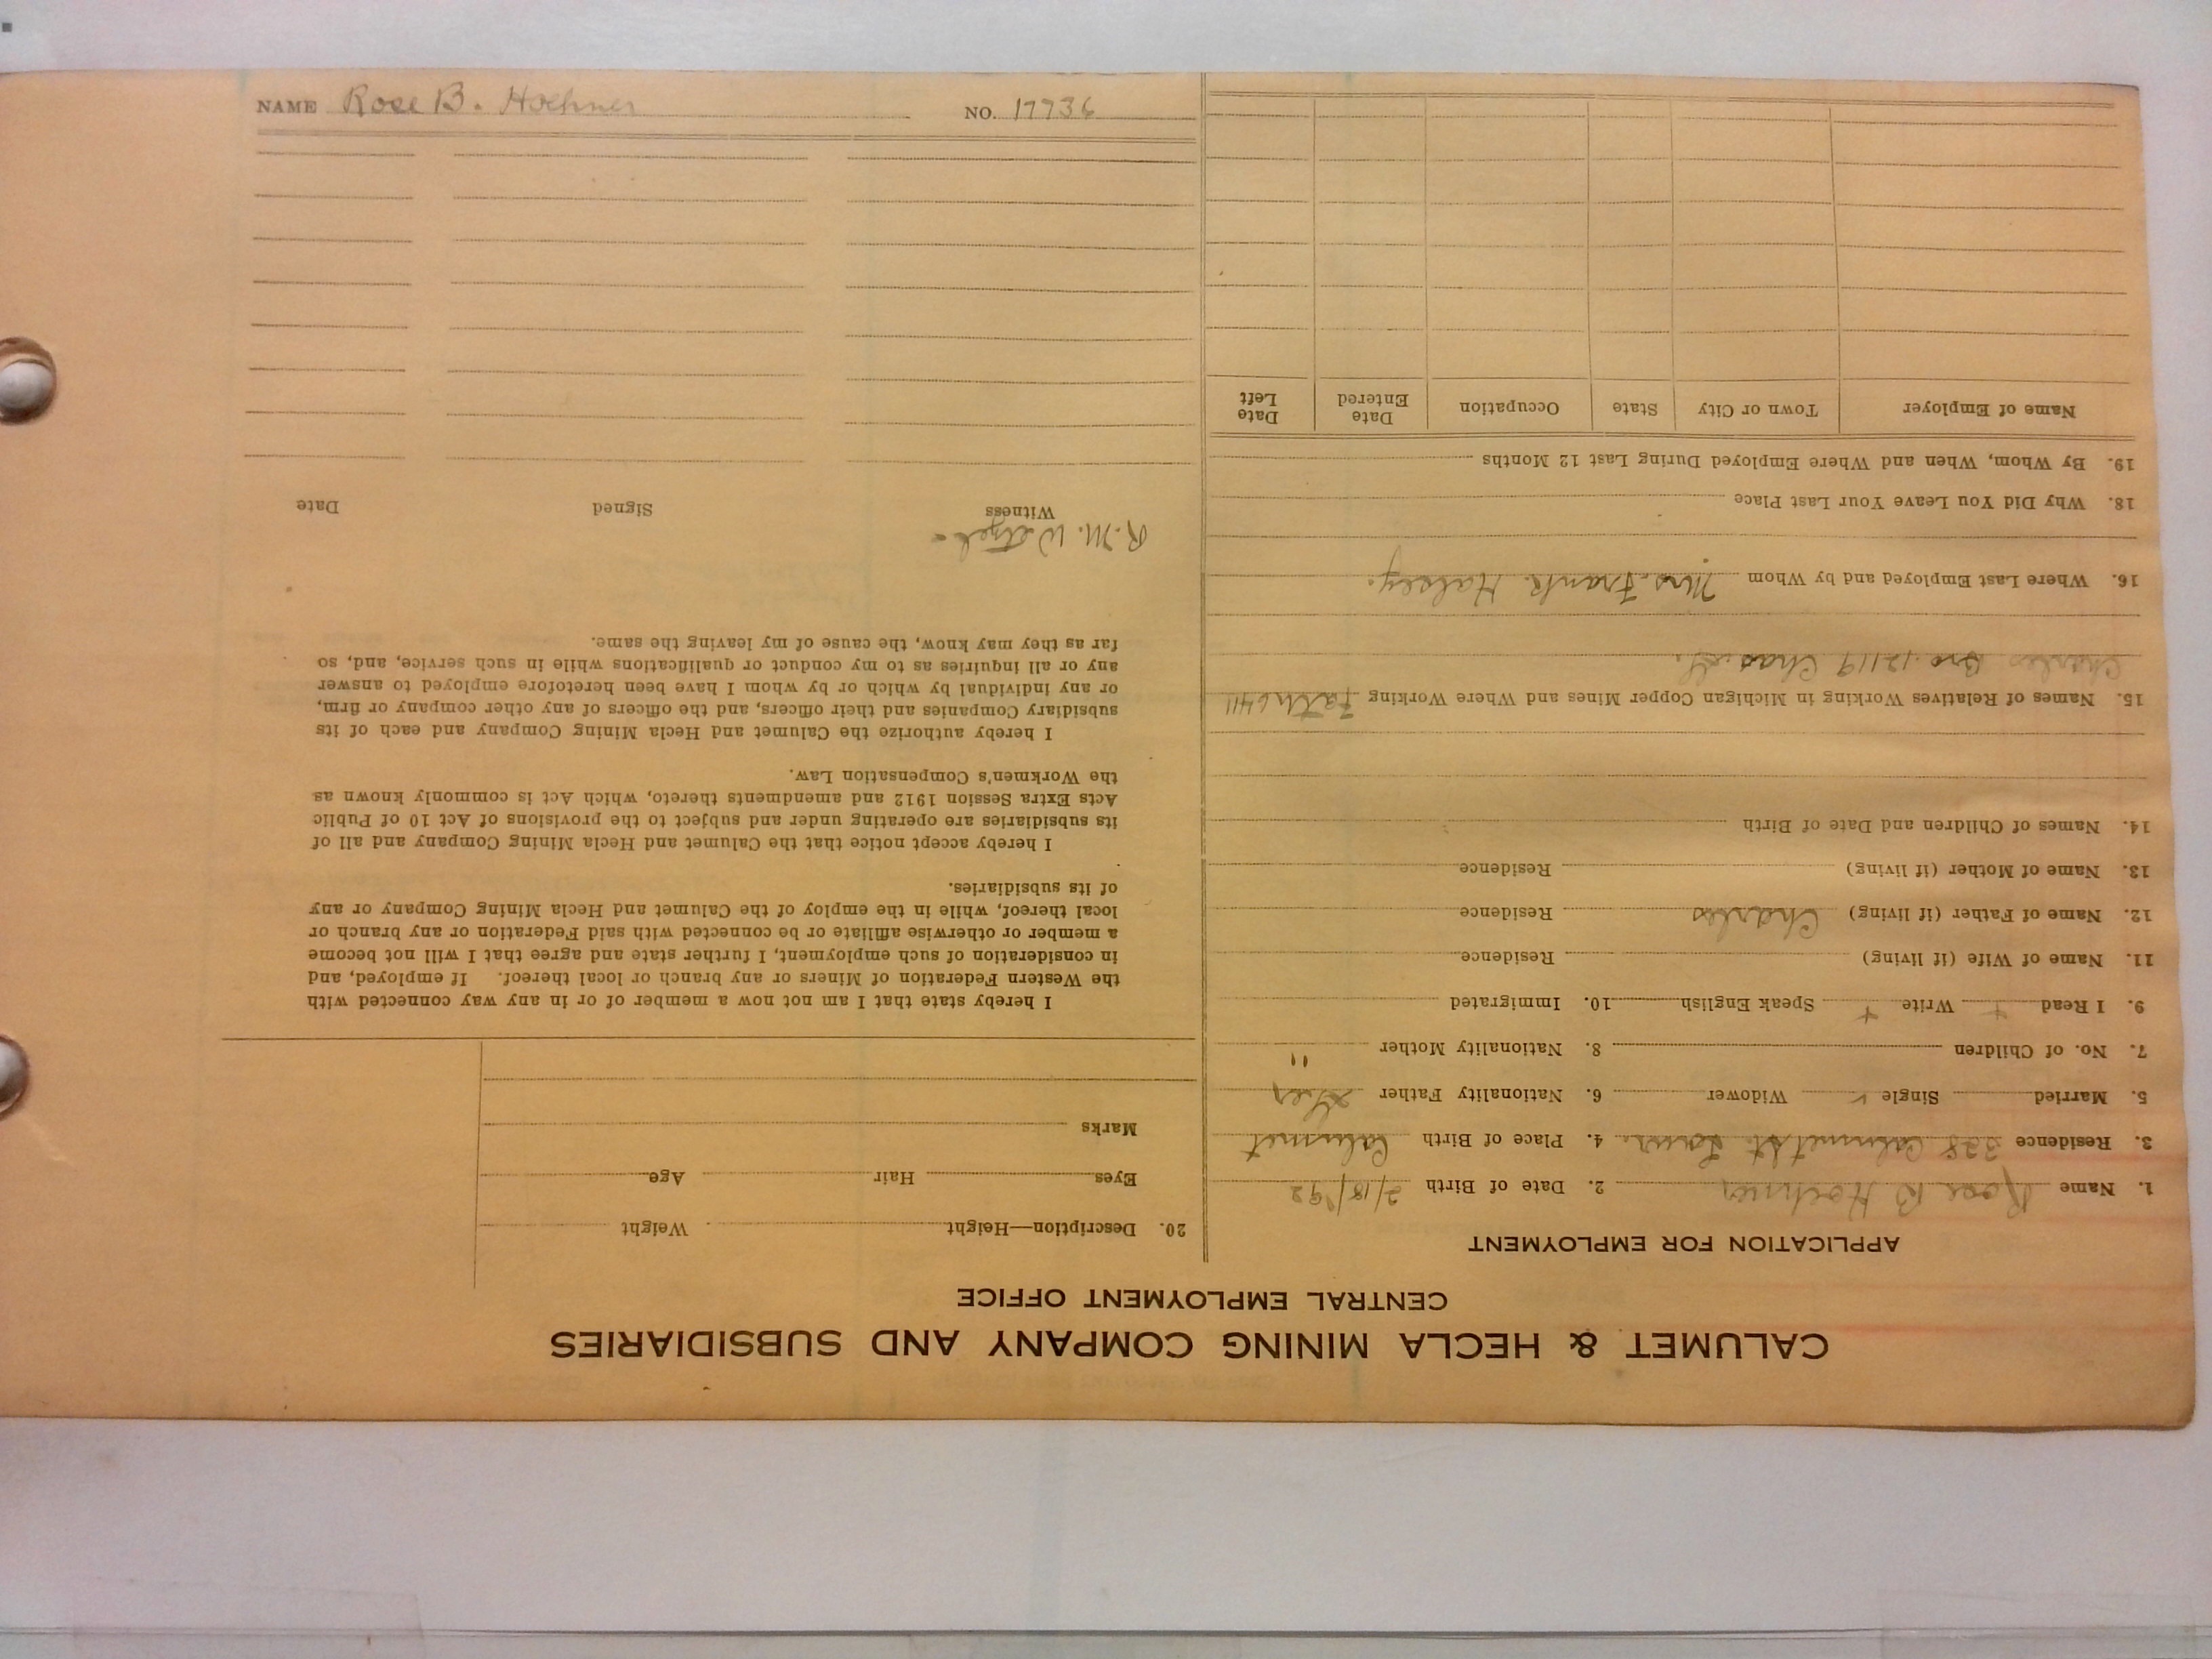 CALUMET & HECLA MINING COMPANY AND SUBSIDIARIES
CENTRAL EMPLOYMENT OFFICE
APPLICATION FOR EMPLOYMENT
1. Name Rose B Hoehner 2. Date of Birth 2/18/'92
3. Residence 328 Calumet St. 4. Place of Birth Calumet
5. Married Single ✓ Widower 6. Nationality Father Ger
7. No. of Children 8. Nationality Mother "
9. I Read + Write + Speak English 10. Immigrated
11. Name of Wife (if living) Residence
12. Name of Father (if living) Charles Residence
13. Name of Mother (if living) Residence
14. Names of Children and Date of Birth
15. Names of Relatives Working in Michigan Copper Mines and Where Working Fath 6411
Charles Bro. 12119 Chas. Jr.
16. Where Last Employed and by Whom Mrs. Frank Halsey.
18. Why Did You Leave Your Last Place
19. By Whom, When and Where Employed During Last 12 Months
Name of Employer Town or City State Occupation Date Entered Date Left
20. Description—Height Weight
Eyes Hair Age
Marks
I hereby state that I am not now a member of or in any way connected with
the Western Federation of Miners or any branch or local thereof. If employed, and
in consideration of such employment, I further state and agree that I will not become
a member or otherwise affiliate or be connected with said Federation or any branch or
local thereof, while in the employ of the Calumet and Hecla Mining Company or any
of its subsidiaries.
I hereby accept notice that the Calumet and Hecla Mining Company and all of
its subsidiaries are operating under and subject to the provisions of Act 10 of Public
Acts Extra Session 1912 and amendments thereto, which Act is commonly known as
the Workmen's Compensation Law.
I hereby authorize the Calumet and Hecla Mining Company and each of its
subsidiary Companies and their officers, and the officers of any other company or firm,
or any individual by which or by whom I have been heretofore employed to answer
any or all inquiries as to my conduct or qualifications while in such service, and, so
far as they may know, the cause of my leaving the same.
R. M. Wetzel
Witness Signed Date
NAME Rose B. Hoehner NO. 17736